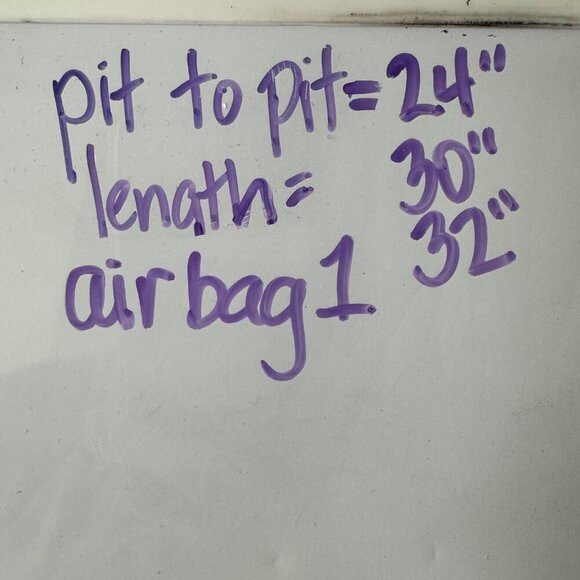 pit to pit = 24"
length = 30"
32"
airbag1